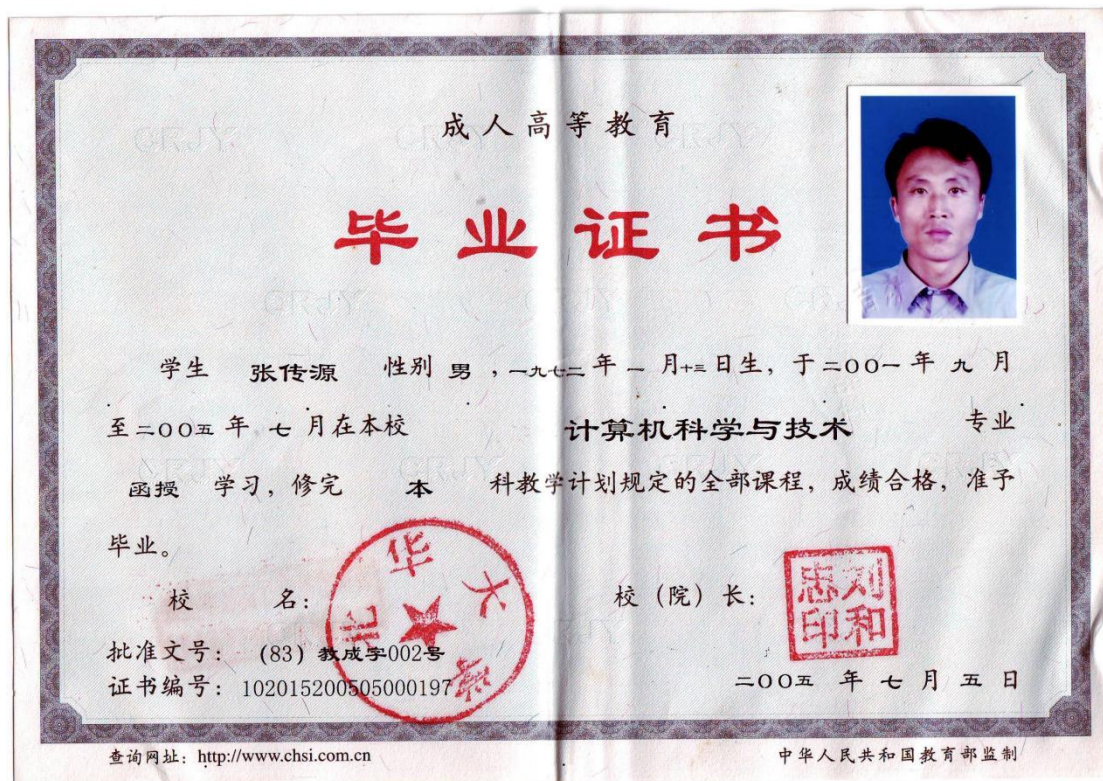 成人高等教育
毕业证书
学生 张传源 性别 男 ，一九七二年 一 月十三日生，于二OO一年 九 月
至二OO五 年 七 月在本校 计算机科学与技术 专业
函授 学习，修完 本 科教学计划规定的全部课程，成绩合格，准予
毕业。
校 名： 北华大学 校（院）长： 刘和忠印
批准文号： (83) 教成字002号
证书编号： 102015200505000197 二OO五 年 七 月 五 日
查询网址：http://www.chsi.com.cn 中华人民共和国教育部监制